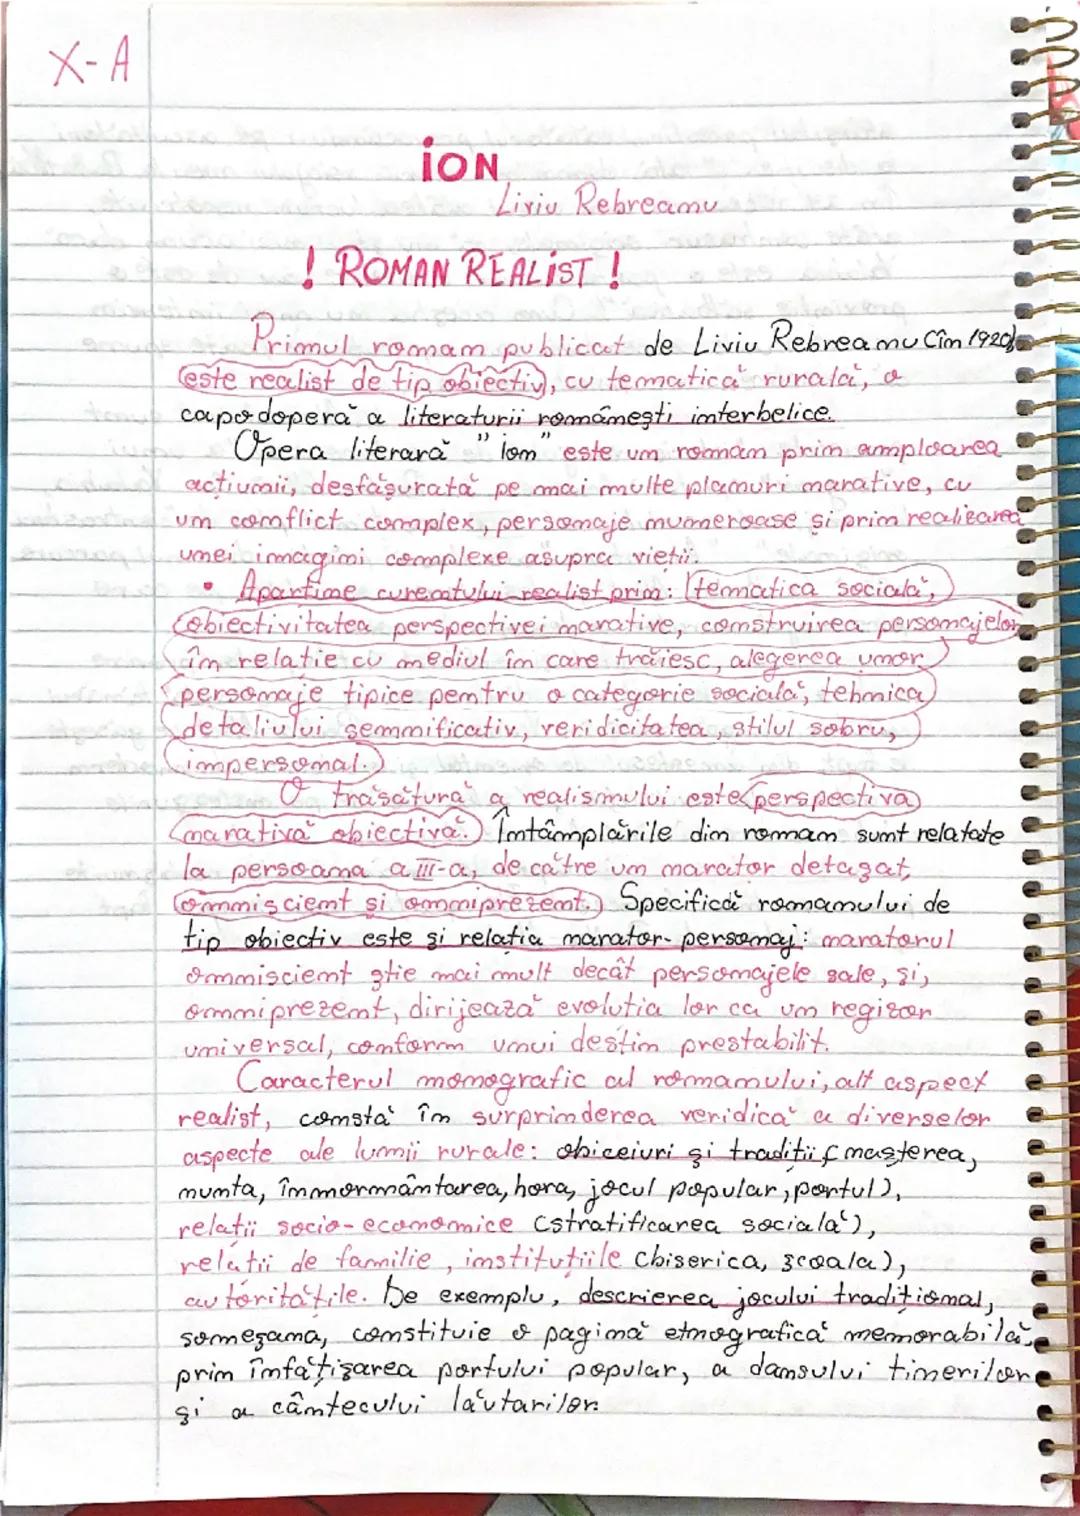 X-A
ION
Liviu Rebreanu
! ROMAN REALIST !
Primul roman publicat de Liviu Rebreanu (în 1920)
este realist de tip obiectiv, cu tematică rurală, o
capodoperă a literaturii românești interbelice.
Opera literară "Ion" este un roman prin amploarea
acțiunii, desfășurată pe mai multe planuri narative, cu
un conflict complex, personaje numeroase și prin realizarea
unei imagini complexe asupra vieții.
• Aparține curentului realist prin: tematica socială,
obiectivitatea perspectivei narative, construirea personajelor
în relație cu mediul în care trăiesc, alegerea unor
personaje tipice pentru o categorie socială, tehnica
detaliului semnificativ, veridicitatea, stilul sobru,
impersonal.
O trăsătură a realismului este perspectiva
narativă obiectivă. Întâmplările din roman sunt relatate
la persoana a III-a, de către un narator detașat,
omniscient și omniprezent. Specifică romanului de
tip obiectiv este și relația narator-personaj: naratorul
omniscient știe mai mult decât personajele sale, și,
omniprezent, dirijează evoluția lor ca un regizor
universal, conform unui destin prestabilit.
Caracterul monografic al romanului, alt aspect
realist, constă în surprinderea veridică a diverselor
aspecte ale lumii rurale: obiceiuri și tradiții (nașterea,
nunta, înmormântarea, hora, jocul popular, portul),
relații socio-economice (stratificarea socială),
relații de familie, instituțiile (biserica, școala),
autoritățile. De exemplu, descrierea jocului tradițional,
someșana, constituie o pagină etnografică memorabilă,
prin înfățișarea portului popular, a dansului tinerilor
și a cântecului lăutarilor.